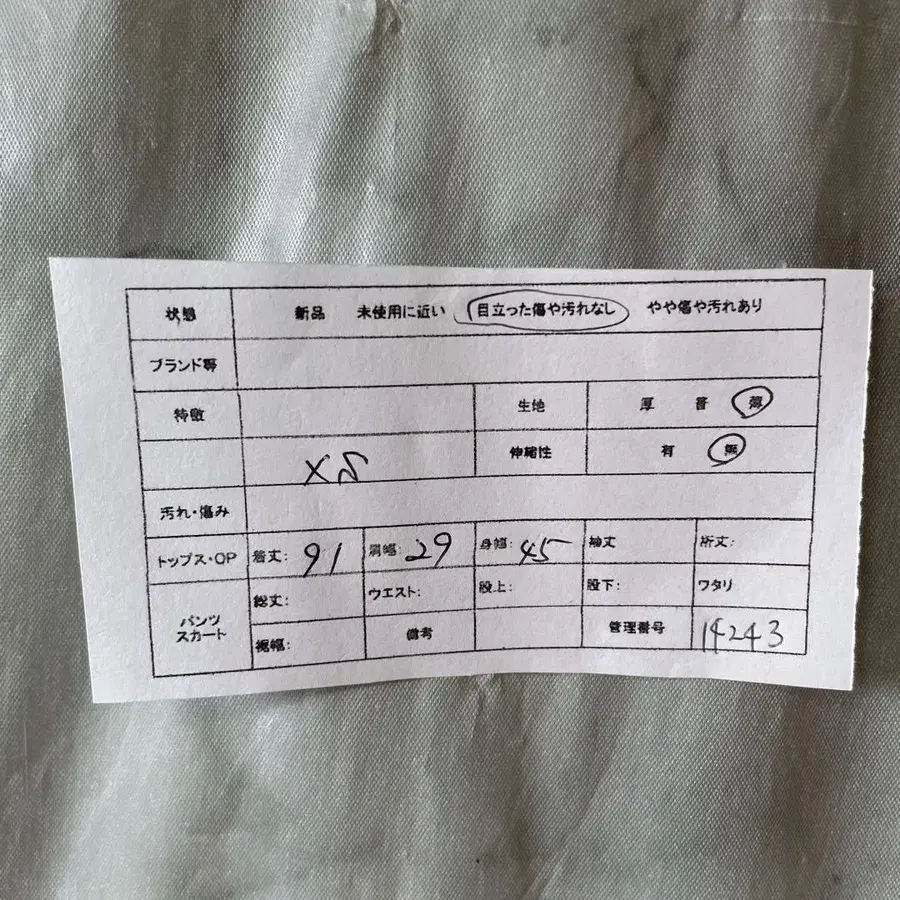 状態 新品 未使用に近い 目立った傷や汚れなし やや傷や汚れあり
ブランド等
特徴 生地 厚 普 薄
XS 伸縮性 有 無
汚れ・傷み
トップス・OP 着丈: 91 肩幅: 29 身幅: 45 袖丈 裄丈:
パンツ スカート
総丈: ウエスト: 股上: 股下: ワタリ
裾幅: 備考 管理番号 14243